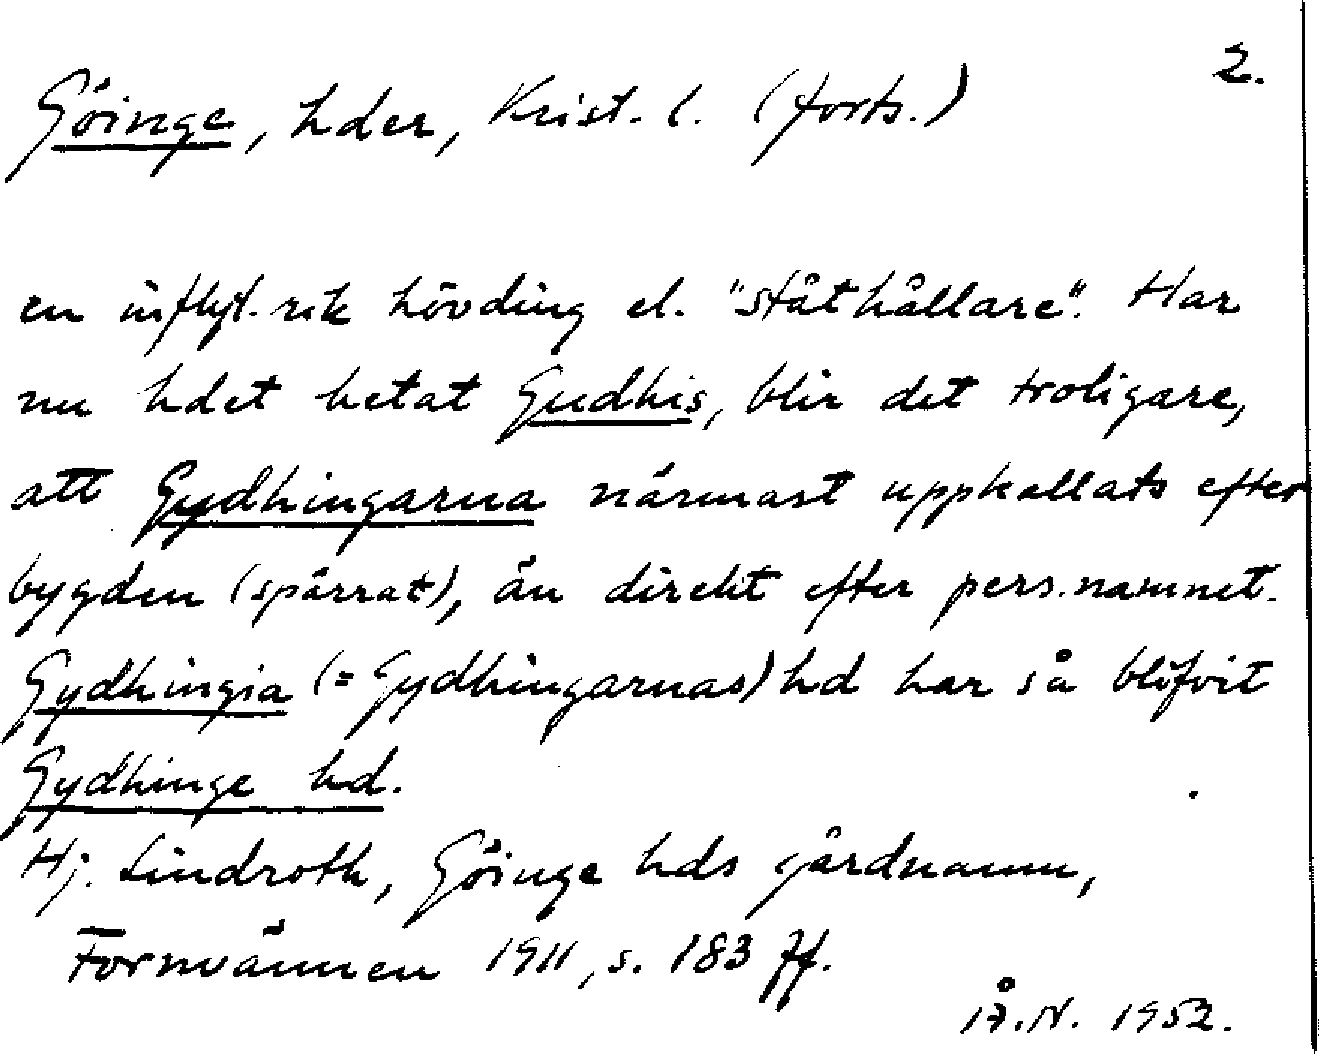 2.
Göinge, hder, Krist. l. (forts.)
en inflyt.rik hövding el. "ståthållare". Har
nu hdet hetat Gudhis, blir det troligare,
att Gydhingarna närmast uppkallats efter
bygden (spärrat), än direkt efter pers.namnet.
Gydhingia (= Gydhingarnas) hd har så blifvit
Gydhinge hd.
Hj. Lindroth, Göinge hds gårdnamn,
Fornvännen 1911, s. 183 ff.
Å.N. 1952.